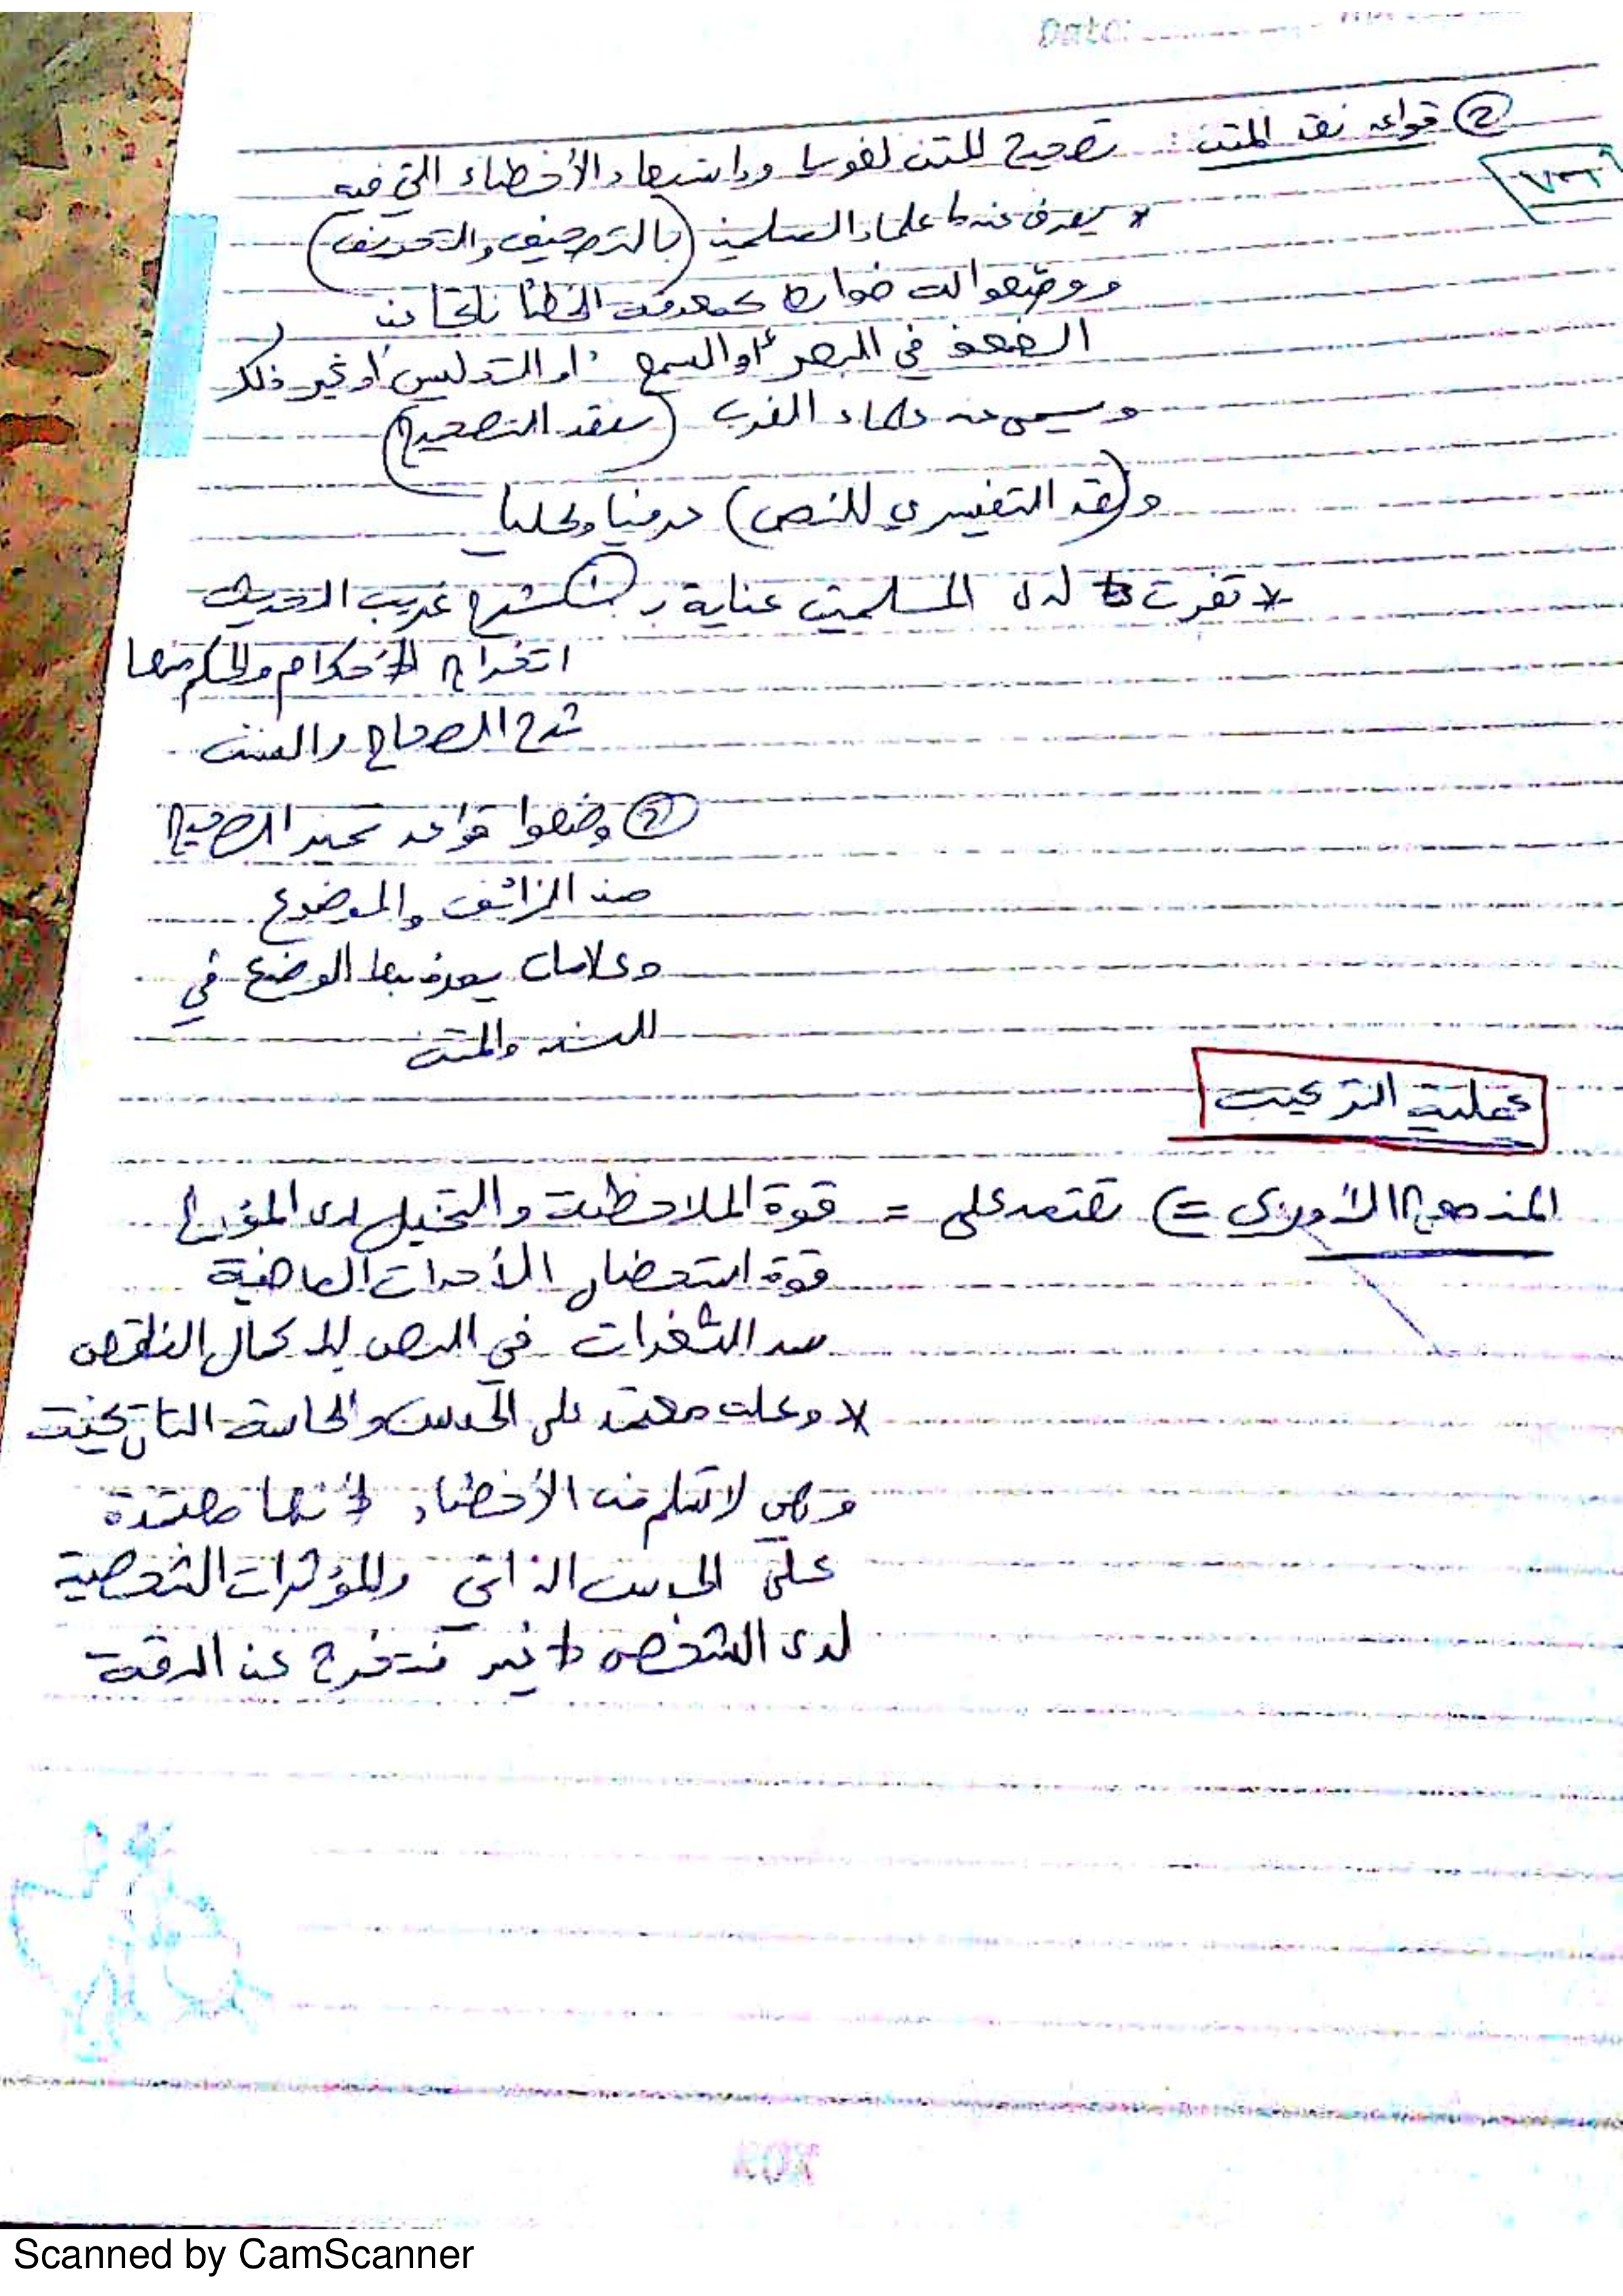 Date:
② قواعد نقد المتن: تصحيح المتن لغويا واستبعاد الأخطاء التي فيه
* يعرف عند علماء المسلمين (بالتصحيف والتحريف)
ووضعوا له ضوابط كمعرفة الخطأ ناتجا من
الضعف في البصر أو السمع أو التدليس أو غير ذلك
ويسمى عند علماء الغرب (بنقد التصحيح)
و(نقد التفسيري للنص) حرفيا و
* لدى المسلمين عناية بـ شرح غريب الحديث
الأحكام والحكم منها
شرح الصحاح والسنن
② وضعوا قواعد تميز الصحيح
من الزائف والموضوع
وعلامات يعرف بها الوضع في
السند والمتن
عملية التركيب
المنهج الأوربي => تعتمد على = قوة الملاحظة والتخيل لدى المؤرخ
قوة استحضار الأحداث الماضية
سد الثغرات في النص لإكمال الناقص
* وعمله معتمد على الحدس والحاسة التاريخية
وهي لا تسلم من الأخطاء لأنها معتمدة
على الحدس الذاتي والمؤثرات الشخصية
لدى الشخص عن الدقة
Scanned by CamScanner